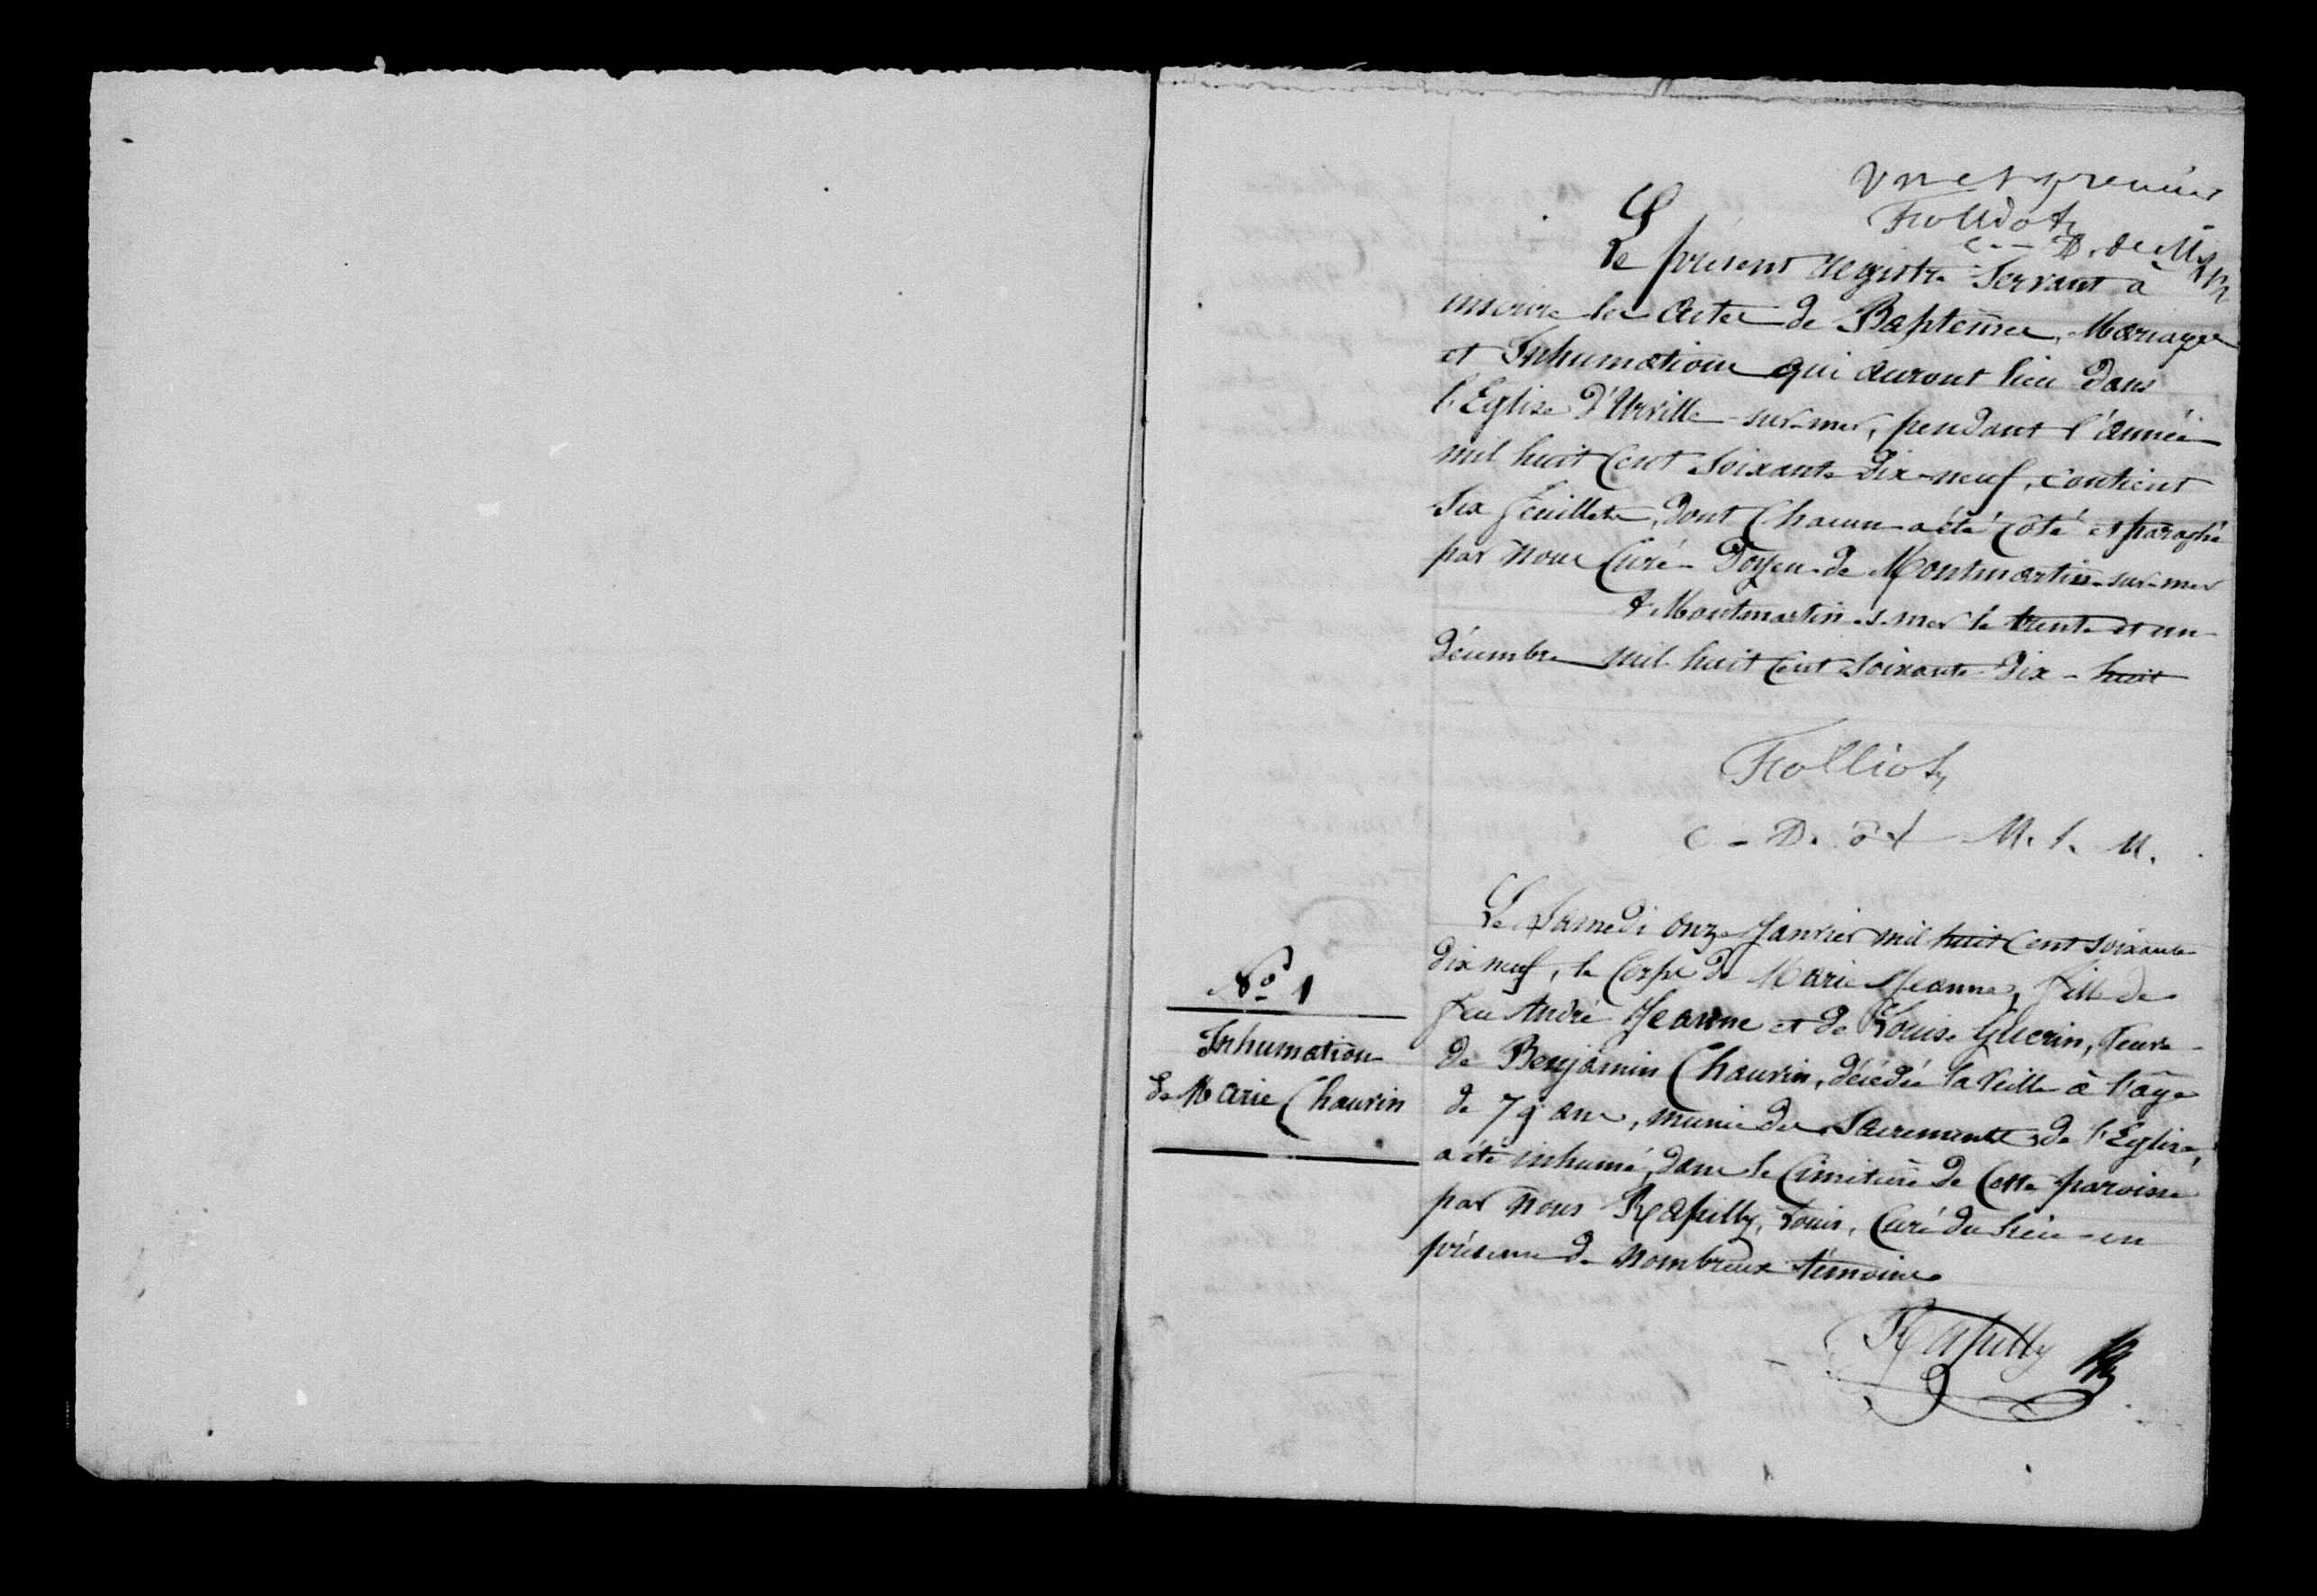 un et premier
Folliot
C. D. de M. s. M
Le présent registre servant à
inscrire les actes de Baptêmes, Mariages
et Inhumations qui auront lieu dans
l'Eglise d'Urville-sur-mer, pendant l'année
mil huit Cent Soixante Dix-neuf, contient
Six feuillets, dont Chacun a été Coté et paraphé
par nous Curé-Doyen de Montmartin-sur-mer
A Montmartin-s-mer le trente et un
Décembre mil huit Cent Soixante-Dix-huit
Folliot
C-D. de M. s. M.
Le Samedi onze Janvier mil huit Cent soixante
dix neuf, le Corps de Marie Jeanne, fille de
feu André Jeanne et de Louise Guerin, Veuve
de Benjamin Chauvin, décédée la veille à l'âge
de 79 ans, munie des Sacrements de l'Eglise,
a été inhumé, dans le Cimitière de Cette paroisse
par nous Rapilly, Louis, Curé du lieu en
présence de nombreux témoins
Rapilly
N° 1
Inhumation
de Marie Chauvin